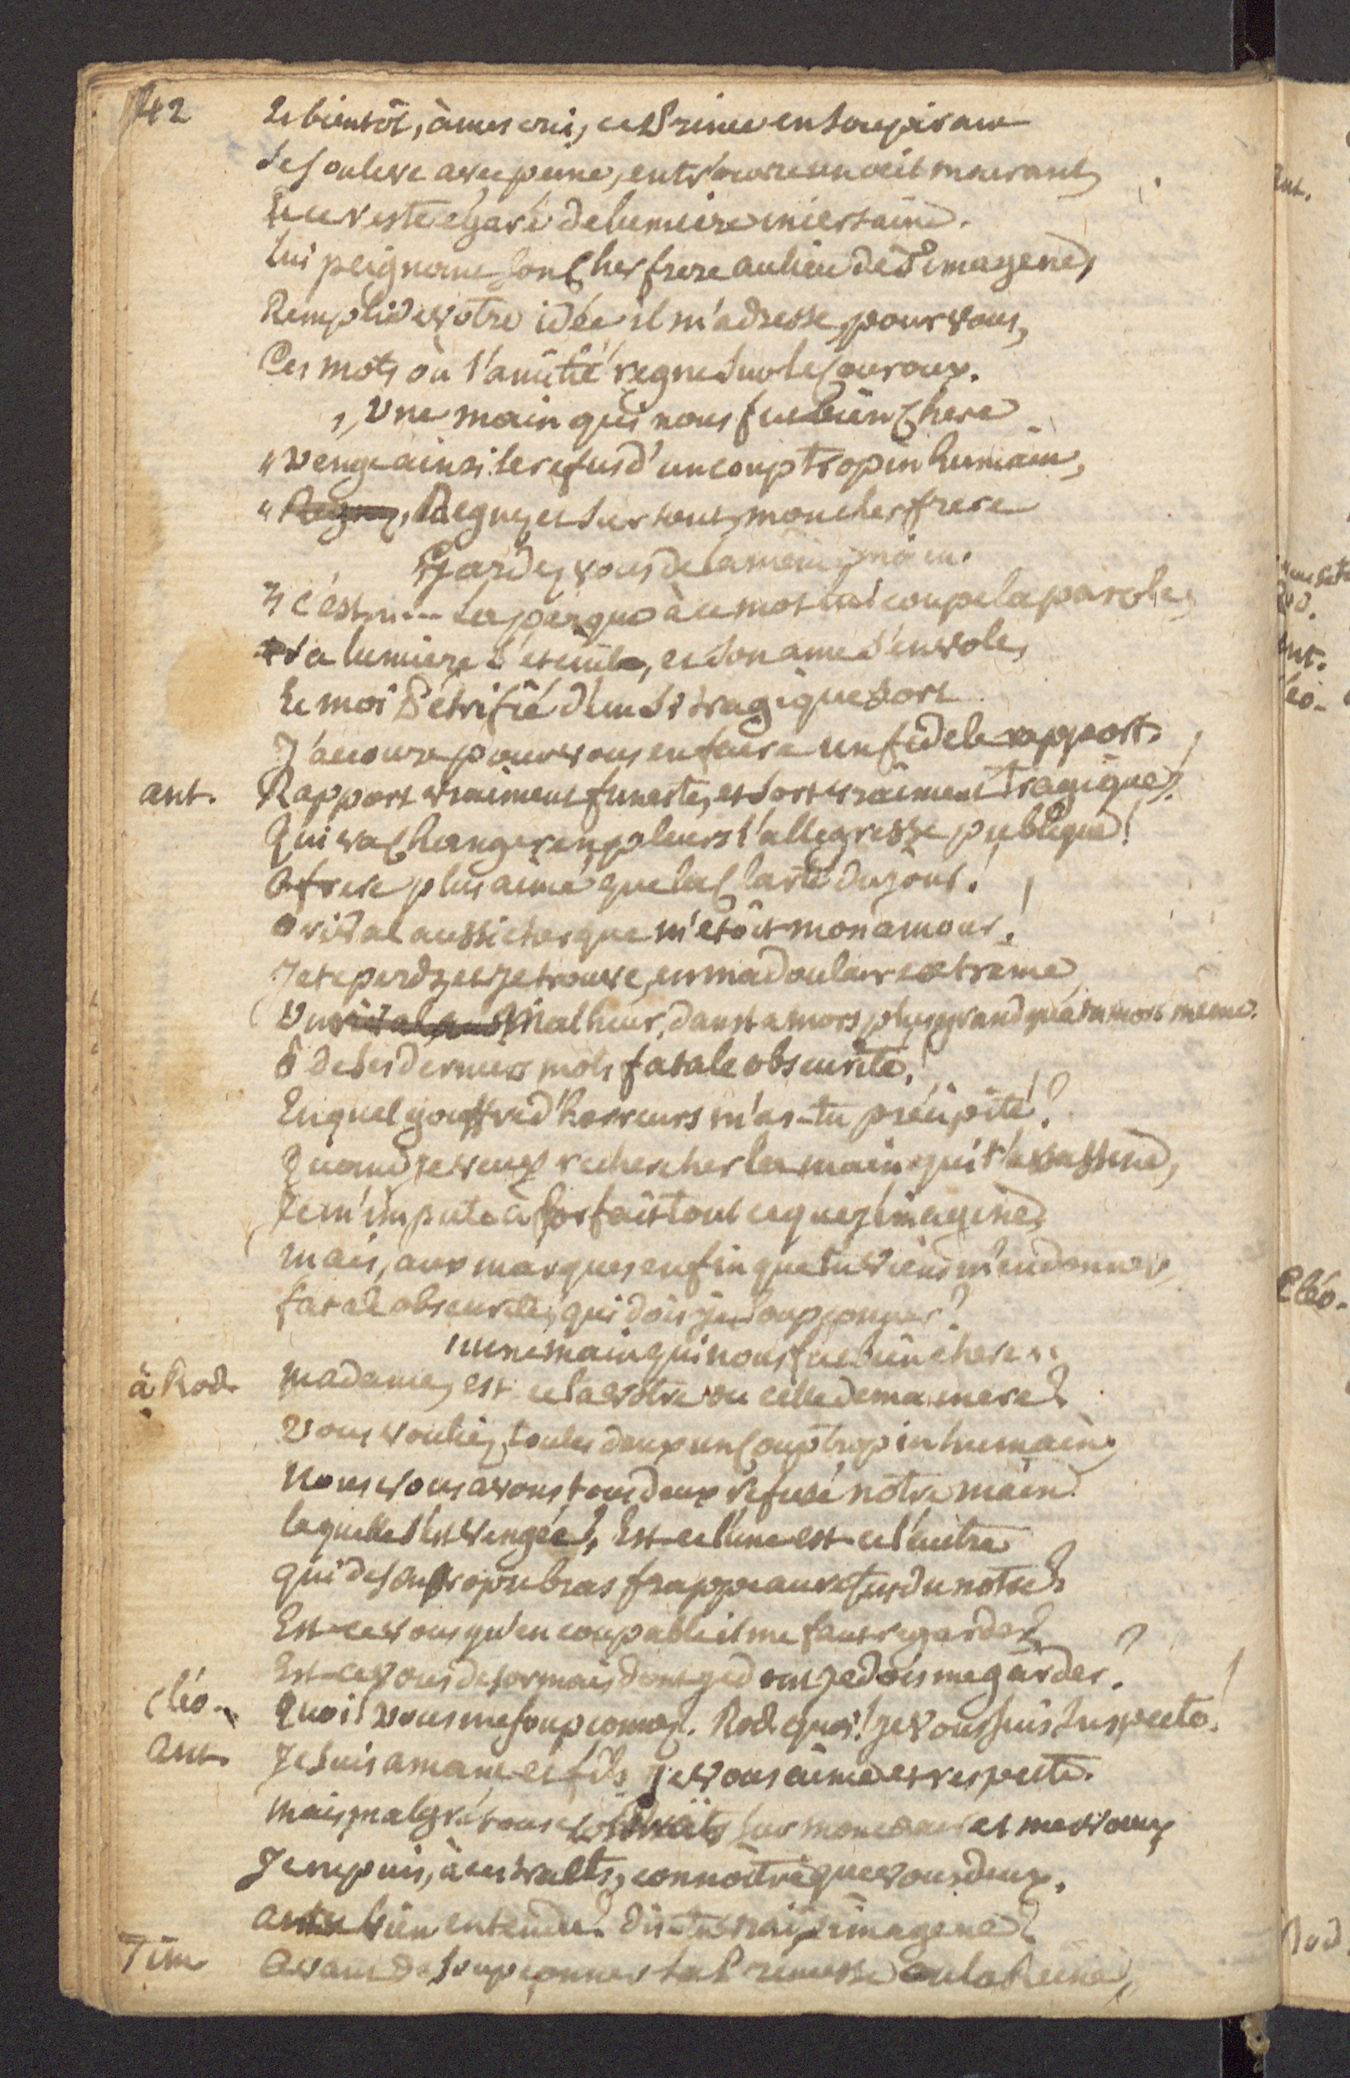 42 Et bientôt, à mes cris, ce Prince en soupirant
Se souleve avec peine, entr'ouvre un oeil mourant,
Et ce reste égaré de lumiere incertaine.
lui peignant son Cher frere au lieu de Timagene,
Rempli de votre idée il m'adresse, pour vous,
Ces mots où l'amitié regne sur le Couroux.
,, Une main qui nous fut bien Chere
,, venge ainsi le refus d'un coup trop inhumain,
,, Regnez, Regnez et sur tout, mon cher frere
Gardez vous de la même main.
,, c'est,,... La parque à ce mot lui coupe la parole,
sa lumiere s'eteint, et son ame s'envole,
Et moi Pétrifié d'un si tragique sort
J'accours pour vous en faire un fidele rapport.
ant. Rapport vraiment funeste, et sort vraiment tragique!
Qui va Changer en pleurs l'allegresse publique!
O frere plus aimé que la Clarté du jour!
O rival aussi cher que m'étoit mon amour!
Je te perds, et je trouve, en ma douleur extreme,
Un rival Malheur, dans ta mort plus grand que ta mort même.
ô de ses derniers mots fatale obscurité!
En quel gouffre d'horreurs m'as-tu précipité?
Quand je veux rechercher la main qui t'assassine,
Je m'impute à forfait tout ce que j'imagine,
mais, aux marques enfin que tu viens m'en donner,
fatale obscurité, qui dois je soupçonner?
,, une main qui nous fut bien chere,,
à Rod. Madame, est ce la votre ou celle de ma mere?
Vous vouliez, toutes deux un Coup trop inhumain,
Nous vous avons tous deux refusé notre main.
laquelle s'est vengée? Est-ce l'une est-ce l'autre
qui de son propre bras frappe au refus du notre?
Est-ce vous qu'en coupable il me faut regarder?
Est-ce vous desormais dont je dois me garder?
Cléo. Quoi! vous me soupçonnez. Rod. quoi! je vous suis suspecte!
Ant. Je suis amant et fils, je vous aime et respecte.
mais, malgré tous sur mon coeur et mes voeux
Je ne puis, à ces traits, connoître que vous deux,
as-tu bien entendu? dis-tu vrai, Timagene?
Tim Avant de soupçonner la Princesse ou la Reine,